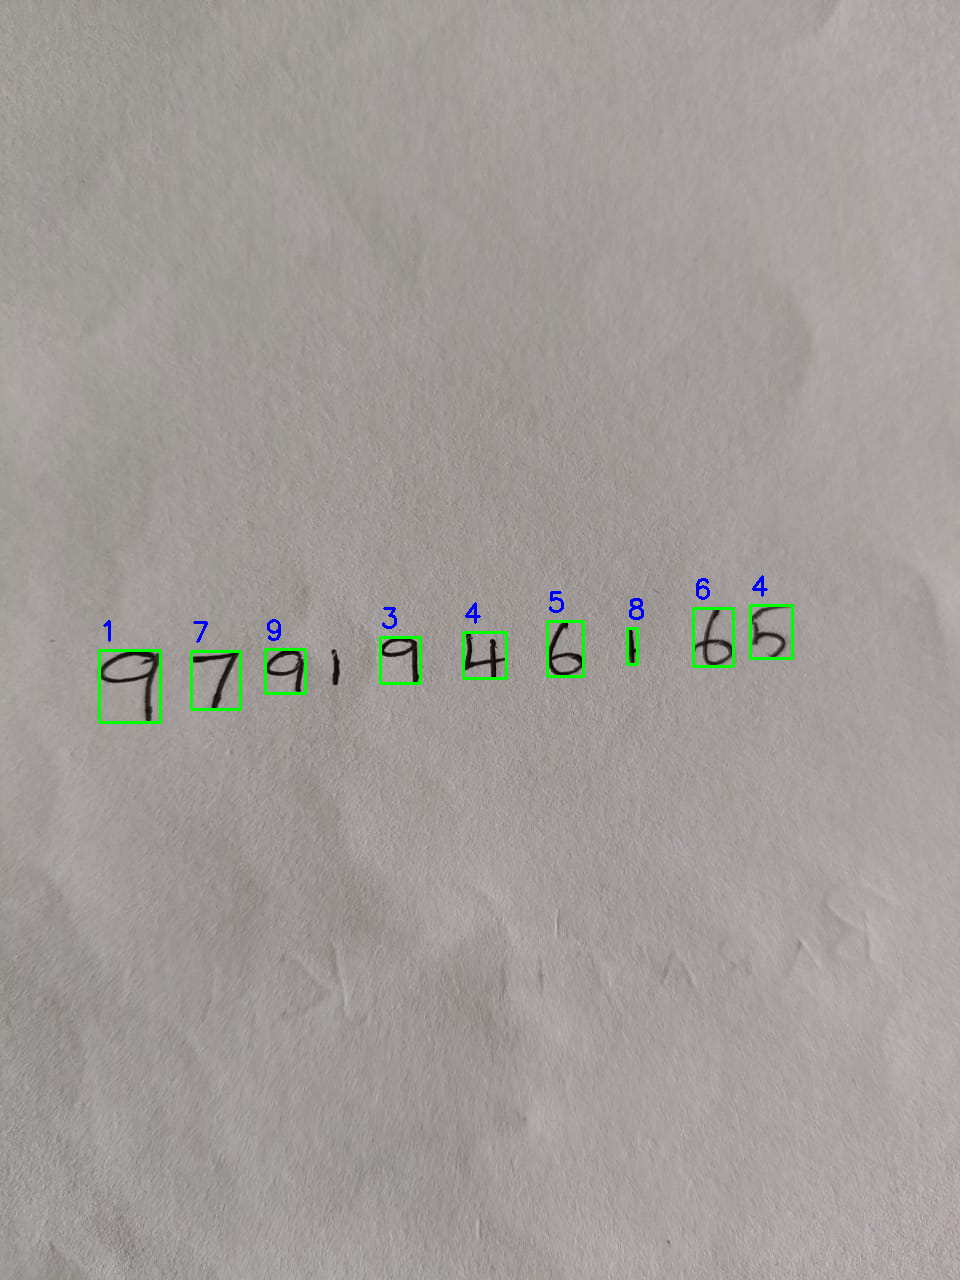 1 7 9 3 4 5 8 6 4
9 7 9 1 9 4 6 1 6 5